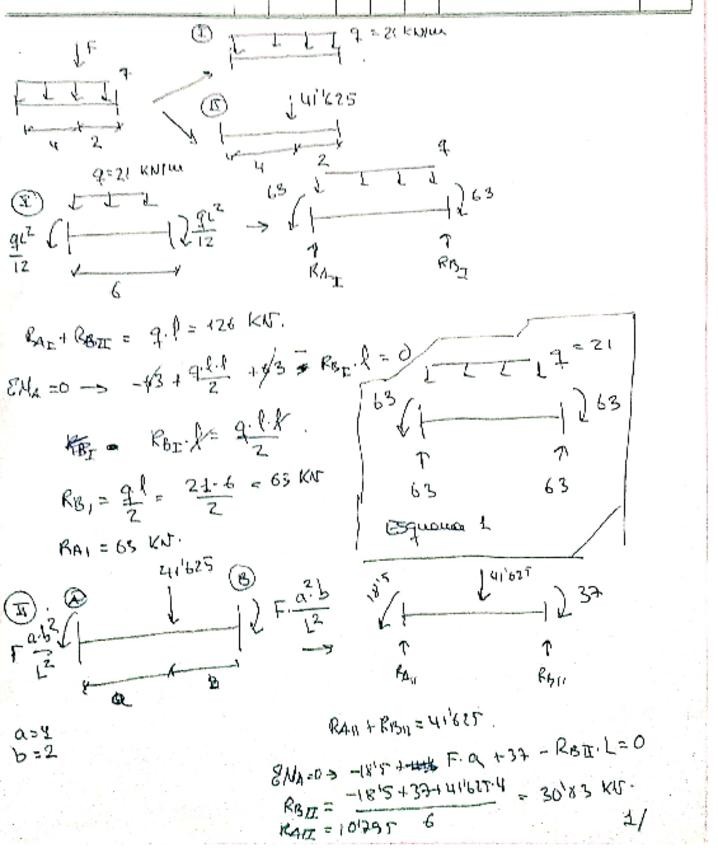 ↓F
q
4 2
Ⅰ q = 21 KN/m
Ⅱ ↓41'625
4 2
Ⅰ q=21 KN/m
qL²/12 qL²/12 →
6
q
63 63
RA_I RB_I
RA_I + RB_II = q·l = 126 KN.
ΣM_A = 0 → -63 + q·l·l/2 + 63 - RB_I·l = 0
RB_I·l = q·l·l/2.
RB_I = q·l/2 = 21·6/2 = 63 KN
RA_I = 63 KN.
q = 21
63 63
63 63
Esquema 1
Ⅱ A 41'625 B
F a·b²/L² F·a²·b/L² →
a B
a=4
b=2
18'5 41'625 37
RA_II RB_II
RA_II + RB_II = 41'625.
ΣM_A=0 → -18'5 + F·a + 37 - RB_II·L = 0
RB_II = -18'5+37+41'625·4/6 = 30'83 KN.
RA_II = 10'795
1/